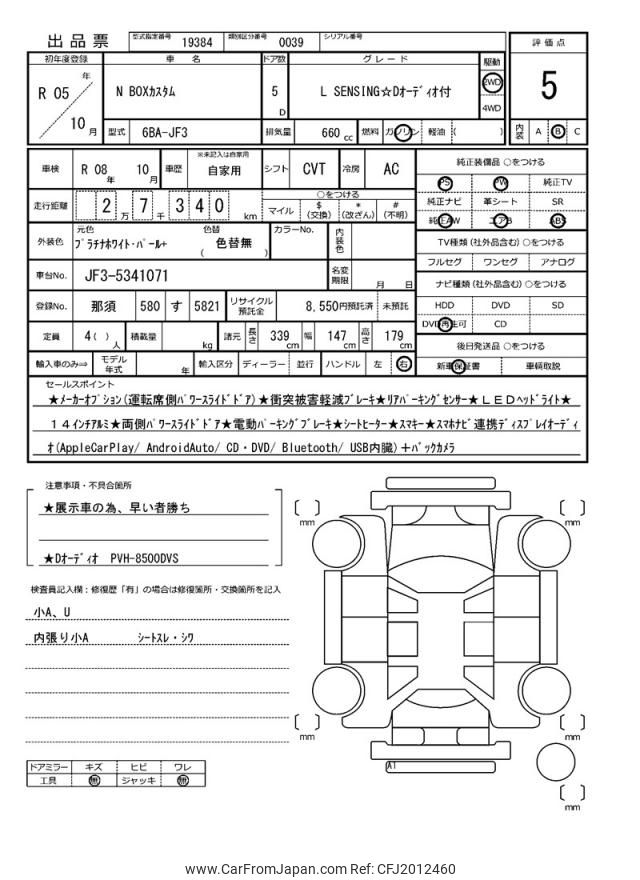 出品票 型式指定番号 19384 類別区分番号 0039 シリアル番号
初年度登録 車名 ドア数 グレード 駆動 評価点
R 05 年 10 月 N BOXカスタム 5 D L SENSING☆Dオーディオ付 2WD 4WD 5
型式 6BA-JF3 排気量 660 cc 燃料 ガソリン 軽油 ( ) 内装 A B C
車検 R 08 年 10 月 車歴 ※未記入は自家用 自家用 シフト CVT 冷房 AC 純正装備品 ○をつける
PS PW 純正TV
走行距離 2 万 7 千 3 4 0 km ○をつける マイル $(交換) *(改ざん) #(不明) 純正ナビ 革シート SR
純正AW エアB ABS
外装色 元色 プラチナホワイト・パール+ 色替 ( 色替無 ) カラーNo. 内装色 TV種類(社外品含む)○をつける
フルセグ ワンセグ アナログ
車台No. JF3-5341071 名変期限 月 日 ナビ種類(社外品含む)○をつける
登録No. 那須 580 す 5821 リサイクル預託金 8,550円預託済 未預託 HDD DVD SD
DVD再生可 CD
定員 4( ) 人 積載量 kg 諸元 長さ 339 cm 幅 147 cm 高さ 179 cm 後日発送品 ○をつける
輸入車のみ⇒ モデル年式 年 輸入区分 ディーラー 並行 ハンドル 左 右 新車保証書 車輌取説
セールスポイント
★メーカーオプション(運転席側パワースライドドア)★衝突被害軽減ブレーキ★リアパーキングセンサー★ＬＥＤヘッドライト★
１４インチアルミ★両側パワースライドドア★電動パーキングブレーキ★シートヒーター★スマキー★スマホナビ連携ディスプレイオーディ
オ(AppleCarPlay/ AndroidAuto/ CD・DVD/ Bluetooth/ USB内臓)＋バックカメラ
注意事項・不具合箇所
★展示車の為、早い者勝ち
★Dオーディオ PVH-8500DVS
検査員記入欄：修復歴「有」の場合は修復箇所・交換箇所を記入
小A、U
内張り小A シートスレ・シワ
mm mm
mm mm
mm
A1
ドアミラー キズ ヒビ ワレ
工具 無 ジャッキ 無
www.CarFromJapan.com Ref: CFJ2012460